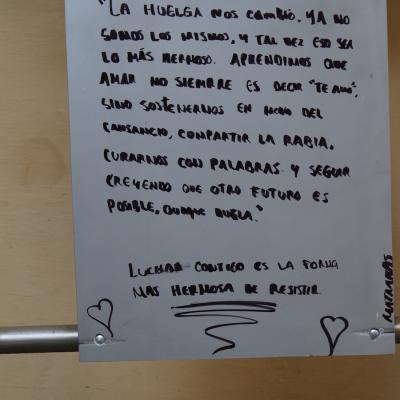 "LA HUELGA NOS CAMBIÓ. YA NO
SOMOS LOS MISMOS, Y TAL VEZ ESO SEA
LO MÁS HERMOSO. APRENDIMOS QUE
AMAR NO SIEMPRE ES DECIR "TE AMO",
SINO SOSTENERNOS EN MEDIO DEL
CANSANCIO, COMPARTIR LA RABIA.
CURARNOS CON PALABRAS Y SEGUIR
CREYENDO QUE OTRO FUTURO ES
POSIBLE, AUNQUE DUELA."
LUCHAR CONTIGO ES LA FORMA
MAS HERMOSA DE RESISTIR